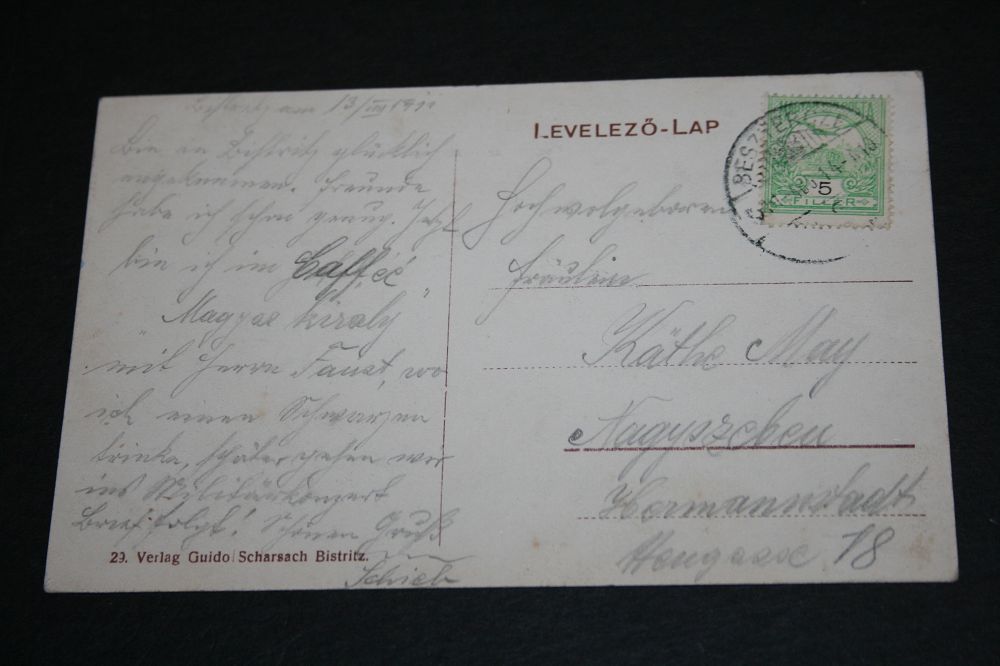 Bistritz am 13/III 1911
Bin in Bistritz glücklich
angekommen. Freunde
habe ich schon genug. Jetzt
bin ich im Caffee
„Magyar király"
mit Herrn Faust, wo
ich einen Schwarzen
trinke, später gehen wir
ins Militärkonzert
Brief folgt! Schönen Gruß
29. Verlag Guido Scharsach Bistritz.
LEVELEZŐ-LAP
BESZTERCZE
5
FILLÉR
Hochwolgeboren
Fräulein
Käthe May
Nagyszeben
Hermannstadt
18